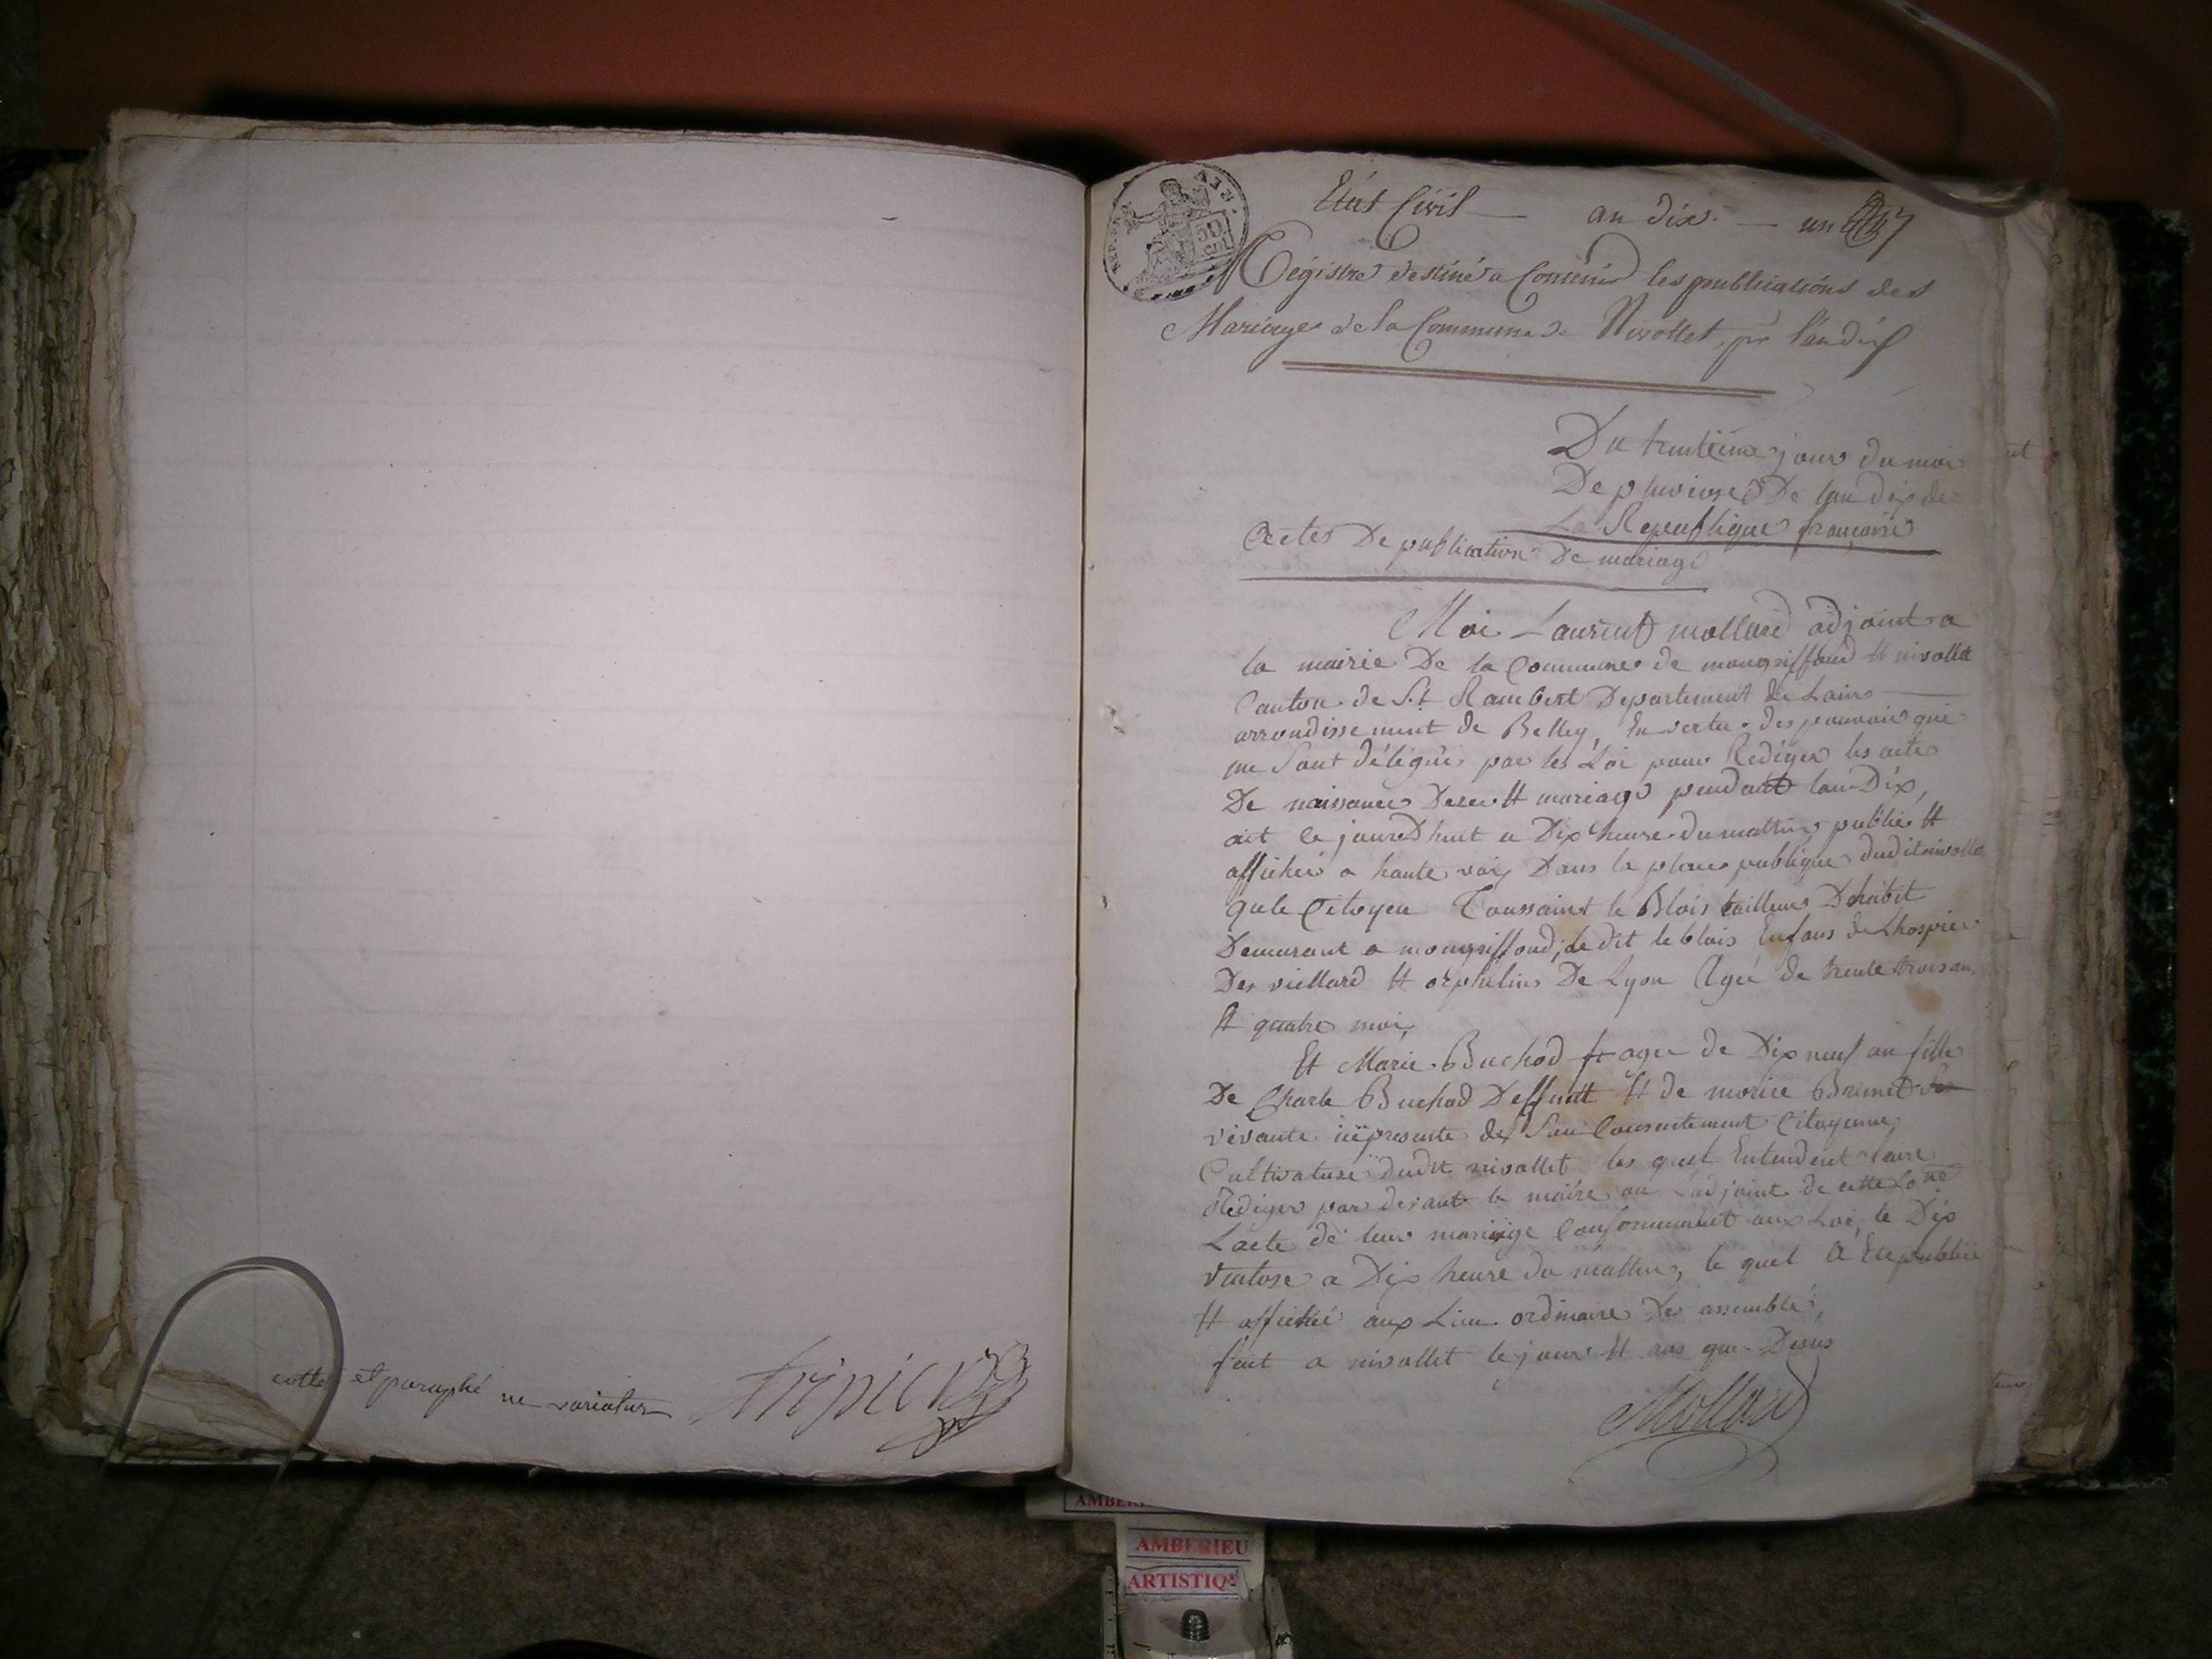 cotté et paraphé ne varietur
REP. FRA.
50
cent
Etat Civil — an dix. — un
Régistre destiné a Contenir les publications des
Mariages de la Commune de Nivollet, pr l'an dix
Du trentieme jour du moi
De pluviose De lan dix de
La Republique françoise
Actes De publication De mariage
Moi Laurent mollard adjoint a
la mairie De la Commune de mongriffond et nivollet
Canton de St Rambert Departement de Lain
arrondissement de Belley, En vertu des pouvoir qui
me Sont délégués par les Loi pour Rediger les actes
De naissance Deces et mariage pendant lan Dix,
ait ce jourdhuit a Dix heure du mattin publié et
affiché a haute voix Dans la place publique dudit nivollet
que le Citoyen Toussaint le Blois tailleur Dehabit
Demurant a mongriffond, le dit le blois Enfans de Lhospice
Des viellard et orphelins De Lyon Agée de trente trois an
et quatre moi,
Et Marie Buchod agee de Dix neuf an fille
De Charle Buchod Deffunt et de Brunet
vivante représente de Son Consentement Citoyenne
Cultivature dudit nivollet les quel Entendent faire
Rediger par devant le maire ou Ladjoint de cette Cone
Lacte de leur mariage Conformement aux Loi, le Dix
Ventose a Dix heure du mattin, le quel A Ete publiée
et affiché aux Lieu ordinaire Des assemblé,
fait a nivollet le jour et ans que Desus
Mollard
AMBERIEU
ARTISTIQ